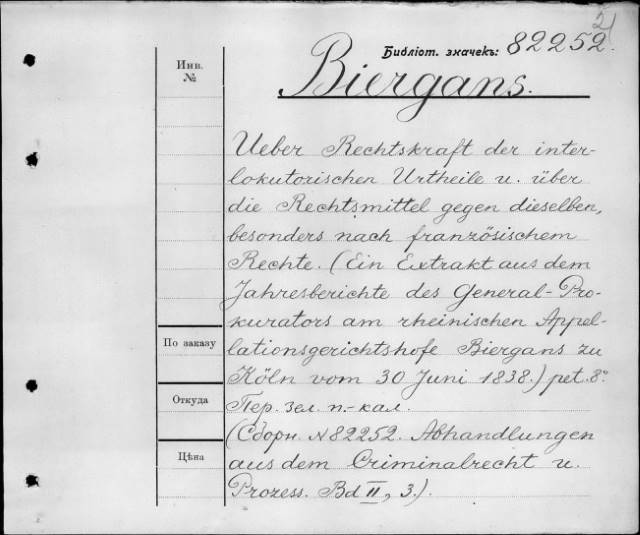 2
Библіот. значекъ: 82252.
Инв.
№
Biergans.
Ueber Rechtskraft der inter-
lokutorischen Urtheile u. über
die Rechtsmittel gegen dieselben,
besonders nach französischem
Rechte. (Ein Extrakt aus dem
Jahresberichte des General-Pro-
kurators am rheinischen Appel-
lationsgerichtshofe Biergans zu
Köln vom 30 Juni 1838.) pet. 8°
Пер. зел. п.-кал.
(Сборн. №82252. Abhandlungen
aus dem Criminalrecht u.
Prozess. Bd II, 3.).
По заказу
Откуда
Цѣна